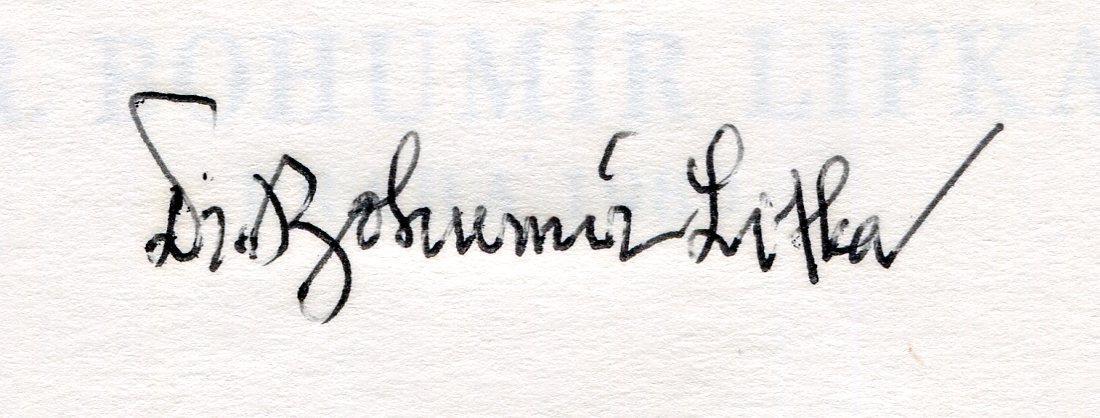 . BOHUMÍR LIFKA
Dr. Bohumír Lifka